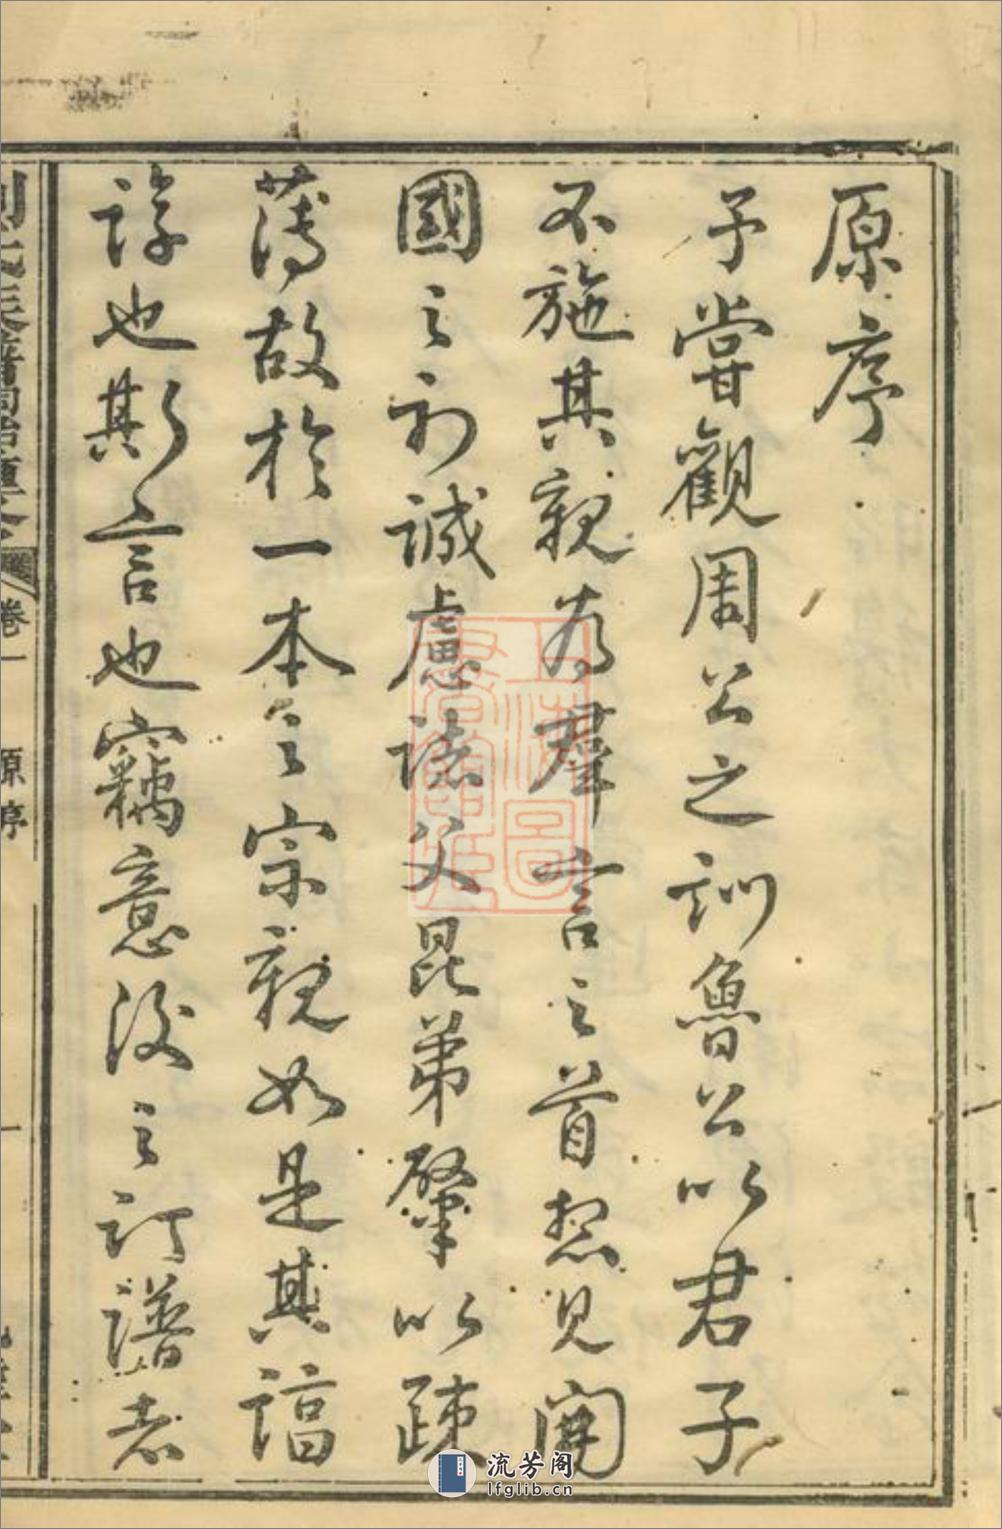 原序
予嘗觀周公之訓魯公以君子
不施其親為羣言之首想見開
國之初誠慮諸父昆弟肇以疎
薄故於一本之宗親如是其諄
諄也斯言也竊意後之訂譜者
卷一
原序
一
上海圖書館藏
流芳阁
lfglib.cn